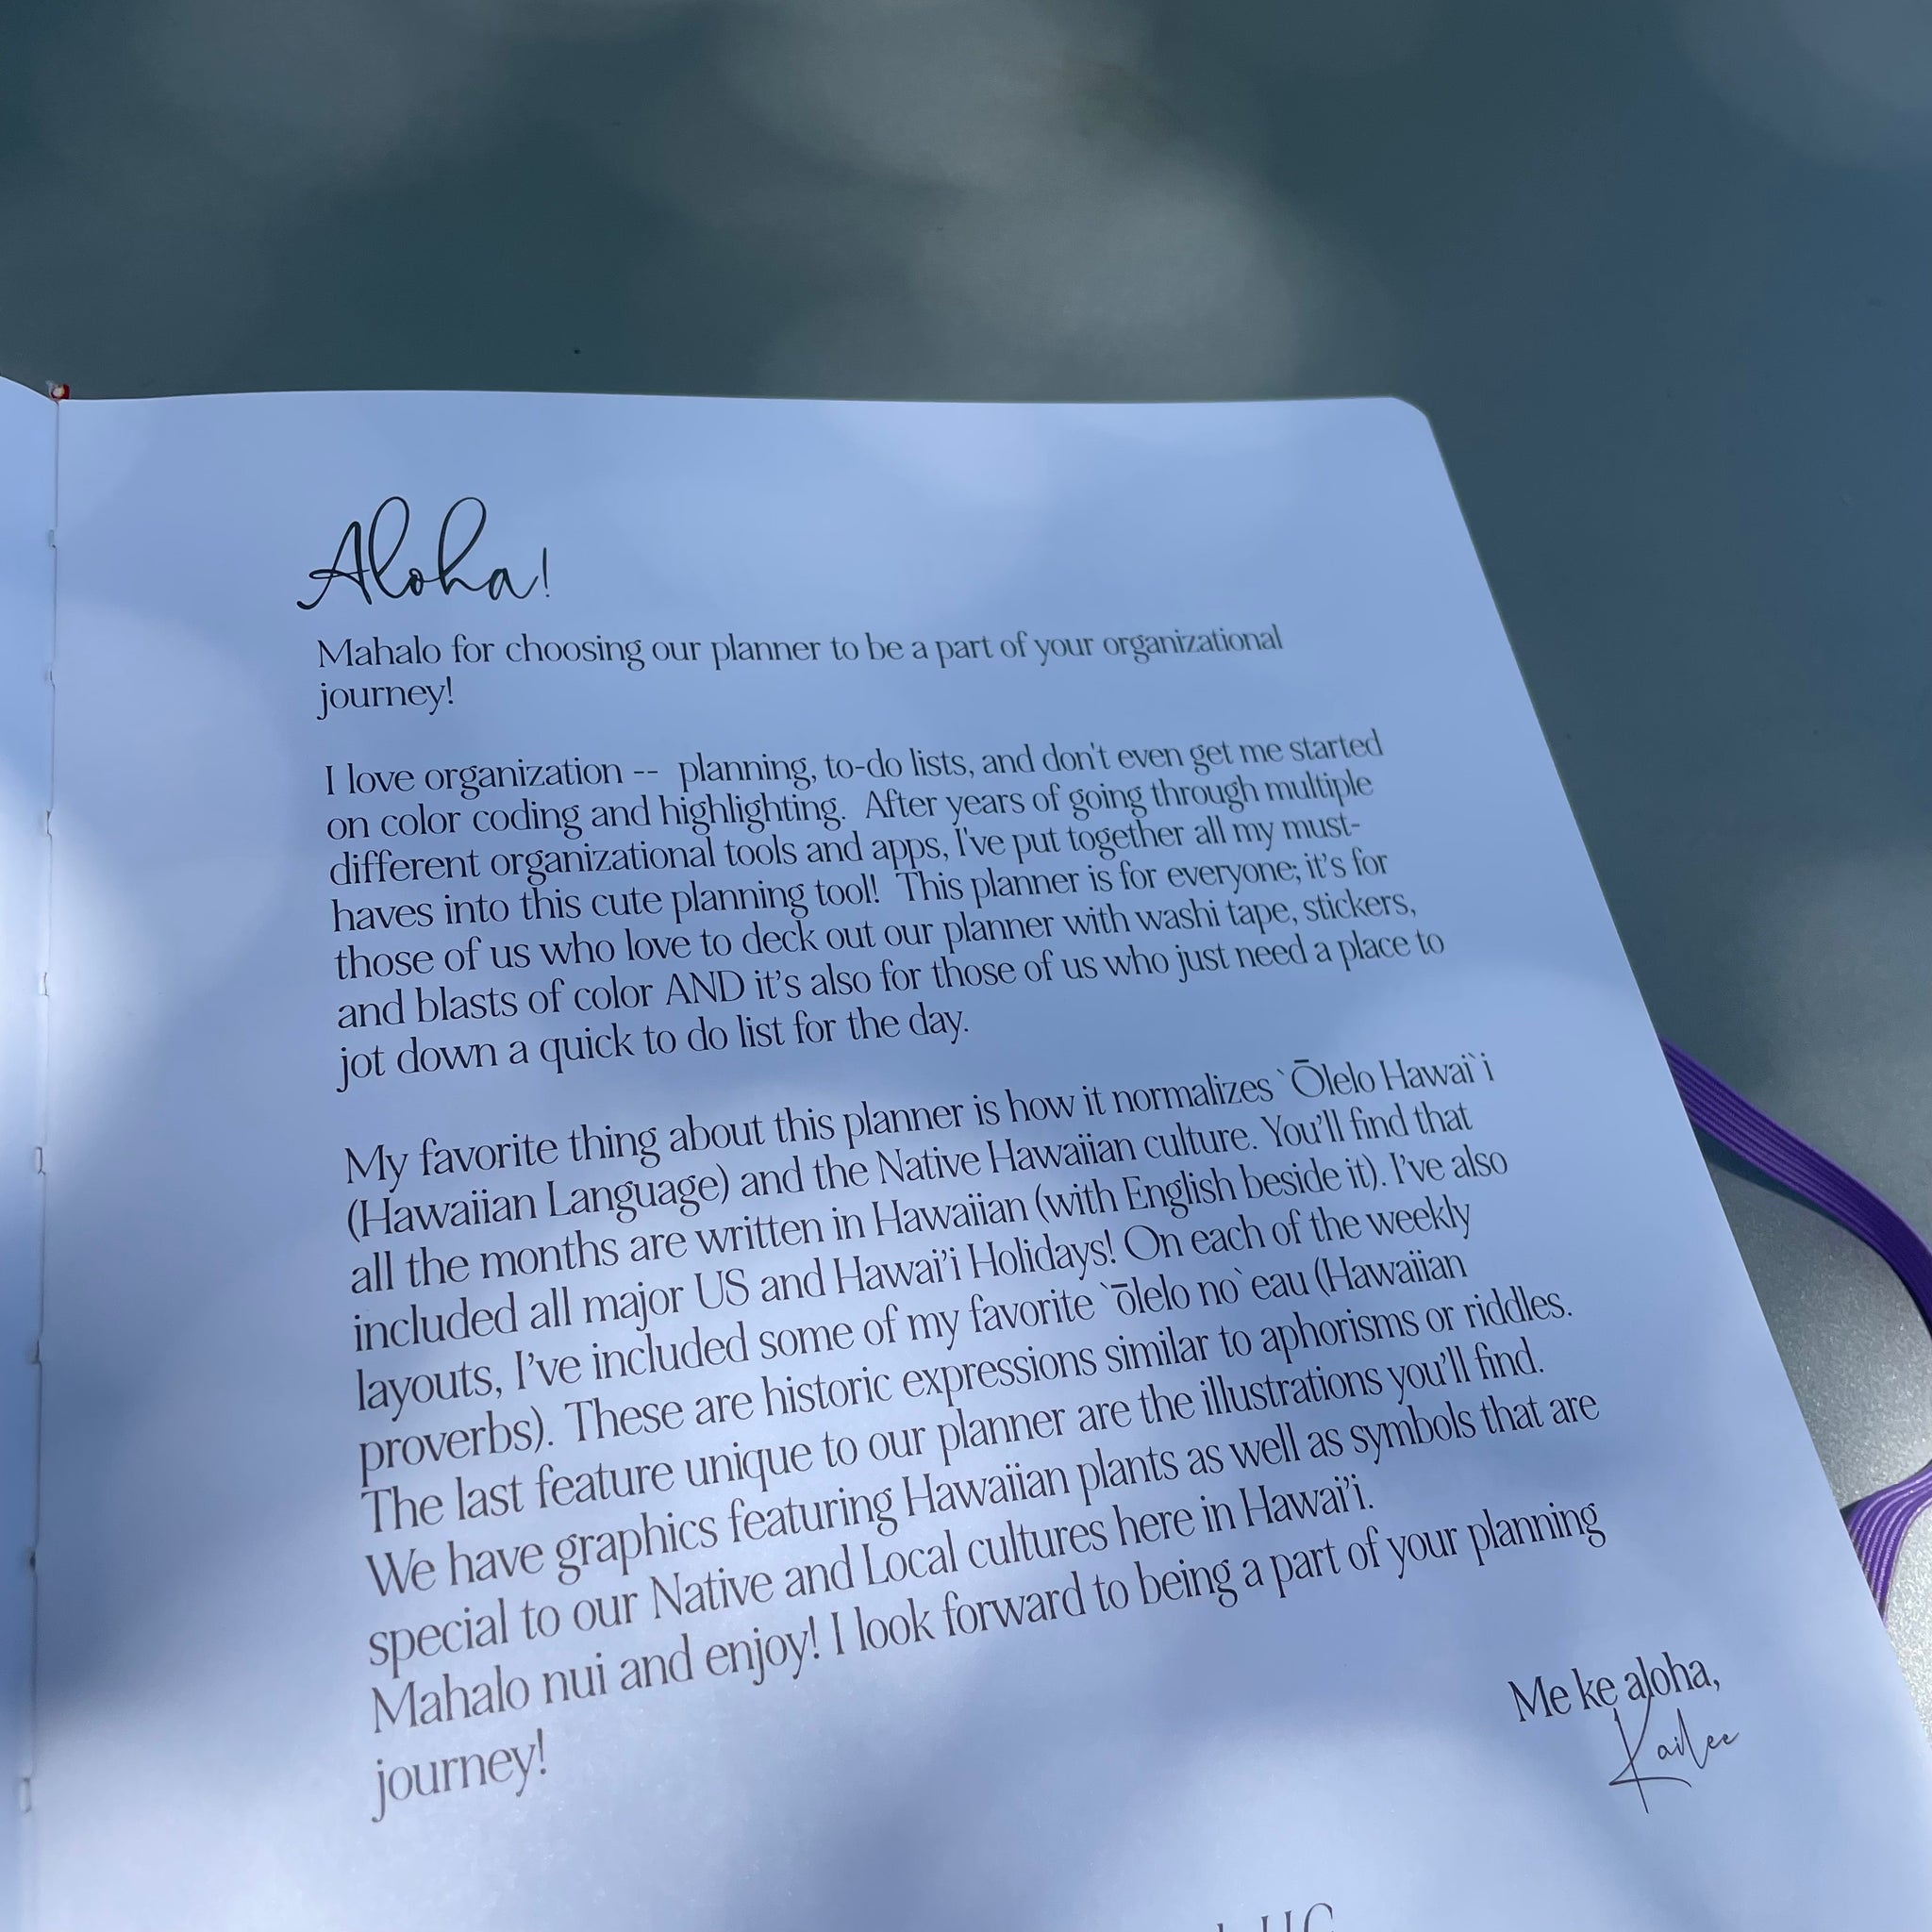 Aloha!
Mahalo for choosing our planner to be a part of your organizational
journey!
I love organization --  planning, to-do lists, and don't even get me started
on color coding and highlighting.  After years of going through multiple
different organizational tools and apps, I've put together all my must-
haves into this cute planning tool!  This planner is for everyone; it's for
those of us who love to deck out our planner with washi tape, stickers,
and blasts of color AND it's also for those of us who just need a place to
jot down a quick to do list for the day.
My favorite thing about this planner is how it normalizes `Ōlelo Hawai`i
(Hawaiian Language) and the Native Hawaiian culture. You'll find that
all the months are written in Hawaiian (with English beside it). I've also
included all major US and Hawai'i Holidays! On each of the weekly
layouts, I've included some of my favorite `ōlelo no`eau (Hawaiian
proverbs). These are historic expressions similar to aphorisms or riddles.
The last feature unique to our planner are the illustrations you'll find.
We have graphics featuring Hawaiian plants as well as symbols that are
special to our Native and Local cultures here in Hawai'i.
Mahalo nui and enjoy! I look forward to being a part of your planning
journey!
Me ke aloha,
Kailee